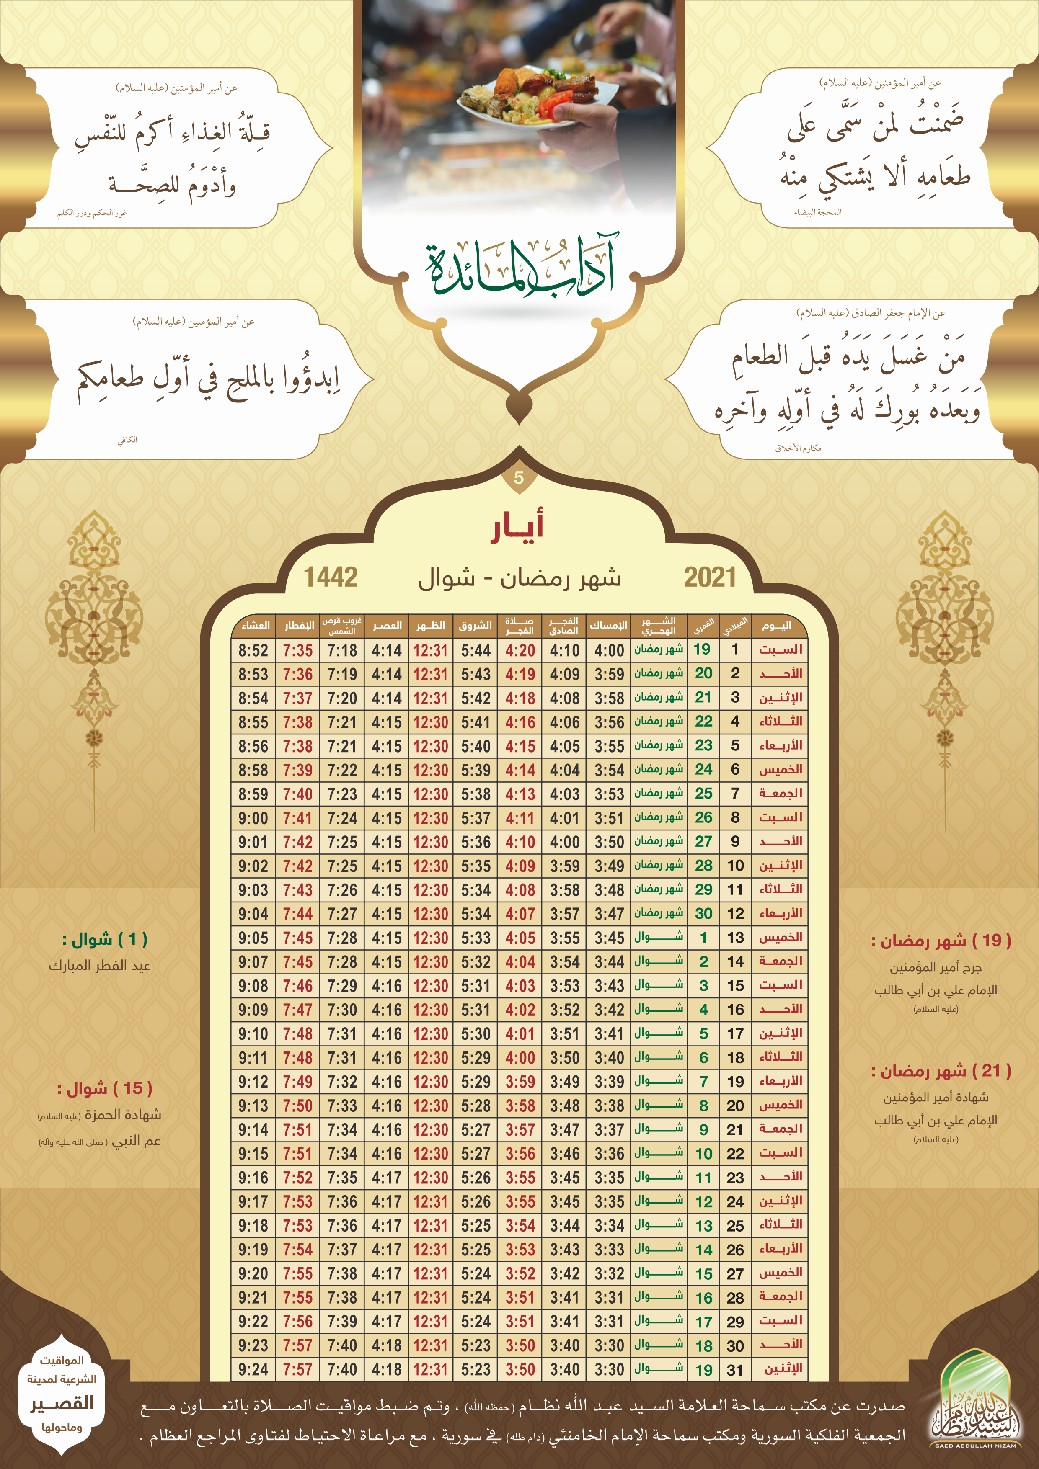 عن أمير المؤمنين (عليه السلام)
ضَمنْتُ لمنْ سَمَّى عَلَى
طعَامِهِ ألا يَشتكي مِنْهُ
المحجة البيضاء
عن أمير المؤمنين (عليه السلام)
قِلّةُ الغِذاءِ أكرمُ للنّفْسِ
وأدْوَمُ للصِحَّة
غرر الحكم ودرر الكلم
آداب المائدة
عن الإمام جعفر الصادق (عليه السلام)
مَنْ غَسَلَ يَدَهُ قبلَ الطعامِ
وَبَعدَهُ بُورِكَ لَهُ في أوّلِهِ وآخرِه
مكارم الأخلاق
عن أمير المؤمنين (عليه السلام)
اِبدؤُوا بالملحِ في أوّلِ طعامِكم
الكافي
5
أيار
2021 شهر رمضان - شوال 1442
اليوم الميلادي القمري الشهر الهجري الإمساك الفجر الصادق صلاة الفجر الشروق الظهر العصر غروب قرص الشمس الإفطار العشاء
السبت 1 19 شهر رمضان 4:00 4:10 4:20 5:44 12:31 4:14 7:18 7:35 8:52
الأحد 2 20 شهر رمضان 3:59 4:09 4:19 5:43 12:31 4:14 7:19 7:36 8:53
الإثنين 3 21 شهر رمضان 3:58 4:08 4:18 5:42 12:31 4:14 7:20 7:37 8:54
الثلاثاء 4 22 شهر رمضان 3:56 4:06 4:16 5:41 12:30 4:15 7:21 7:38 8:55
الأربعاء 5 23 شهر رمضان 3:55 4:05 4:15 5:40 12:30 4:15 7:21 7:38 8:56
الخميس 6 24 شهر رمضان 3:54 4:04 4:14 5:39 12:30 4:15 7:22 7:39 8:58
الجمعة 7 25 شهر رمضان 3:53 4:03 4:13 5:38 12:30 4:15 7:23 7:40 8:59
السبت 8 26 شهر رمضان 3:51 4:01 4:11 5:37 12:30 4:15 7:24 7:41 9:00
الأحد 9 27 شهر رمضان 3:50 4:00 4:10 5:36 12:30 4:15 7:25 7:42 9:01
الإثنين 10 28 شهر رمضان 3:49 3:59 4:09 5:35 12:30 4:15 7:25 7:42 9:02
الثلاثاء 11 29 شهر رمضان 3:48 3:58 4:08 5:34 12:30 4:15 7:26 7:43 9:03
الأربعاء 12 30 شهر رمضان 3:47 3:57 4:07 5:34 12:30 4:15 7:27 7:44 9:04
الخميس 13 1 شوال 3:45 3:55 4:05 5:33 12:30 4:15 7:28 7:45 9:05
الجمعة 14 2 شوال 3:44 3:54 4:04 5:32 12:30 4:15 7:28 7:45 9:07
السبت 15 3 شوال 3:43 3:53 4:03 5:31 12:30 4:16 7:29 7:46 9:08
الأحد 16 4 شوال 3:42 3:52 4:02 5:31 12:30 4:16 7:30 7:47 9:09
الإثنين 17 5 شوال 3:41 3:51 4:01 5:30 12:30 4:16 7:31 7:48 9:10
الثلاثاء 18 6 شوال 3:40 3:50 4:00 5:29 12:30 4:16 7:31 7:48 9:11
الأربعاء 19 7 شوال 3:39 3:49 3:59 5:29 12:30 4:16 7:32 7:49 9:12
الخميس 20 8 شوال 3:38 3:48 3:58 5:28 12:30 4:16 7:33 7:50 9:13
الجمعة 21 9 شوال 3:37 3:47 3:57 5:27 12:30 4:16 7:34 7:51 9:14
السبت 22 10 شوال 3:36 3:46 3:56 5:27 12:30 4:16 7:34 7:51 9:15
الأحد 23 11 شوال 3:35 3:45 3:55 5:26 12:30 4:17 7:35 7:52 9:16
الإثنين 24 12 شوال 3:35 3:45 3:55 5:26 12:31 4:17 7:36 7:53 9:17
الثلاثاء 25 13 شوال 3:34 3:44 3:54 5:25 12:31 4:17 7:36 7:53 9:18
الأربعاء 26 14 شوال 3:33 3:43 3:53 5:25 12:31 4:17 7:37 7:54 9:19
الخميس 27 15 شوال 3:32 3:42 3:52 5:24 12:31 4:17 7:38 7:55 9:20
الجمعة 28 16 شوال 3:31 3:41 3:51 5:24 12:31 4:17 7:38 7:55 9:21
السبت 29 17 شوال 3:31 3:41 3:51 5:24 12:31 4:17 7:39 7:56 9:22
الأحد 30 18 شوال 3:30 3:40 3:50 5:23 12:31 4:18 7:40 7:57 9:23
الإثنين 31 19 شوال 3:30 3:40 3:50 5:23 12:31 4:18 7:40 7:57 9:24
( 19 ) شهر رمضان :
جرح أمير المؤمنين
الإمام علي بن أبي طالب
(عليه السلام)
( 21 ) شهر رمضان :
شهادة أمير المؤمنين
الإمام علي بن أبي طالب
(عليه السلام)
( 1 ) شوال :
عيد الفطر المبارك
( 15 ) شوال :
شهادة الحمزة (عليه السلام)
عم النبي (صلى الله عليه وآله)
المواقيت
الشرعية لمدينة
القصير
وماحولها
صدرت عن مكتب سماحة العلامة السيد عبد الله نظام (حفظه الله) ، وتم ضبط مواقيت الصلاة بالتعاون مع
الجمعية الفلكية السورية ومكتب سماحة الإمام الخامنئي (دام ظله) في سورية ، مع مراعاة الاحتياط لفتاوى المراجع العظام .
السيد عبد الله نظام
SAED ABDULLAH NIZAM